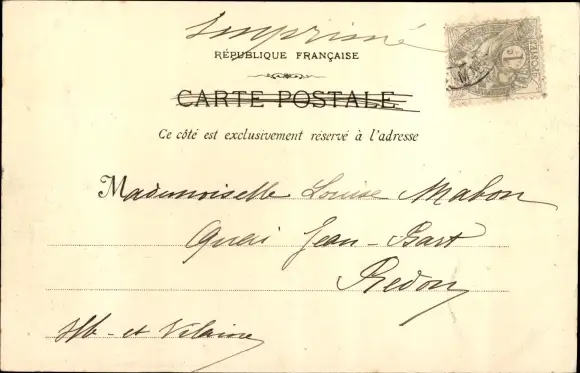 Imprimé
RÉPUBLIQUE FRANÇAISE
CARTE POSTALE
Ce côté est exclusivement réservé à l'adresse
Mademoiselle Louise Mahon
Quai Jean-Bart
Redon
Ille-et Vilaine
1c
POSTES